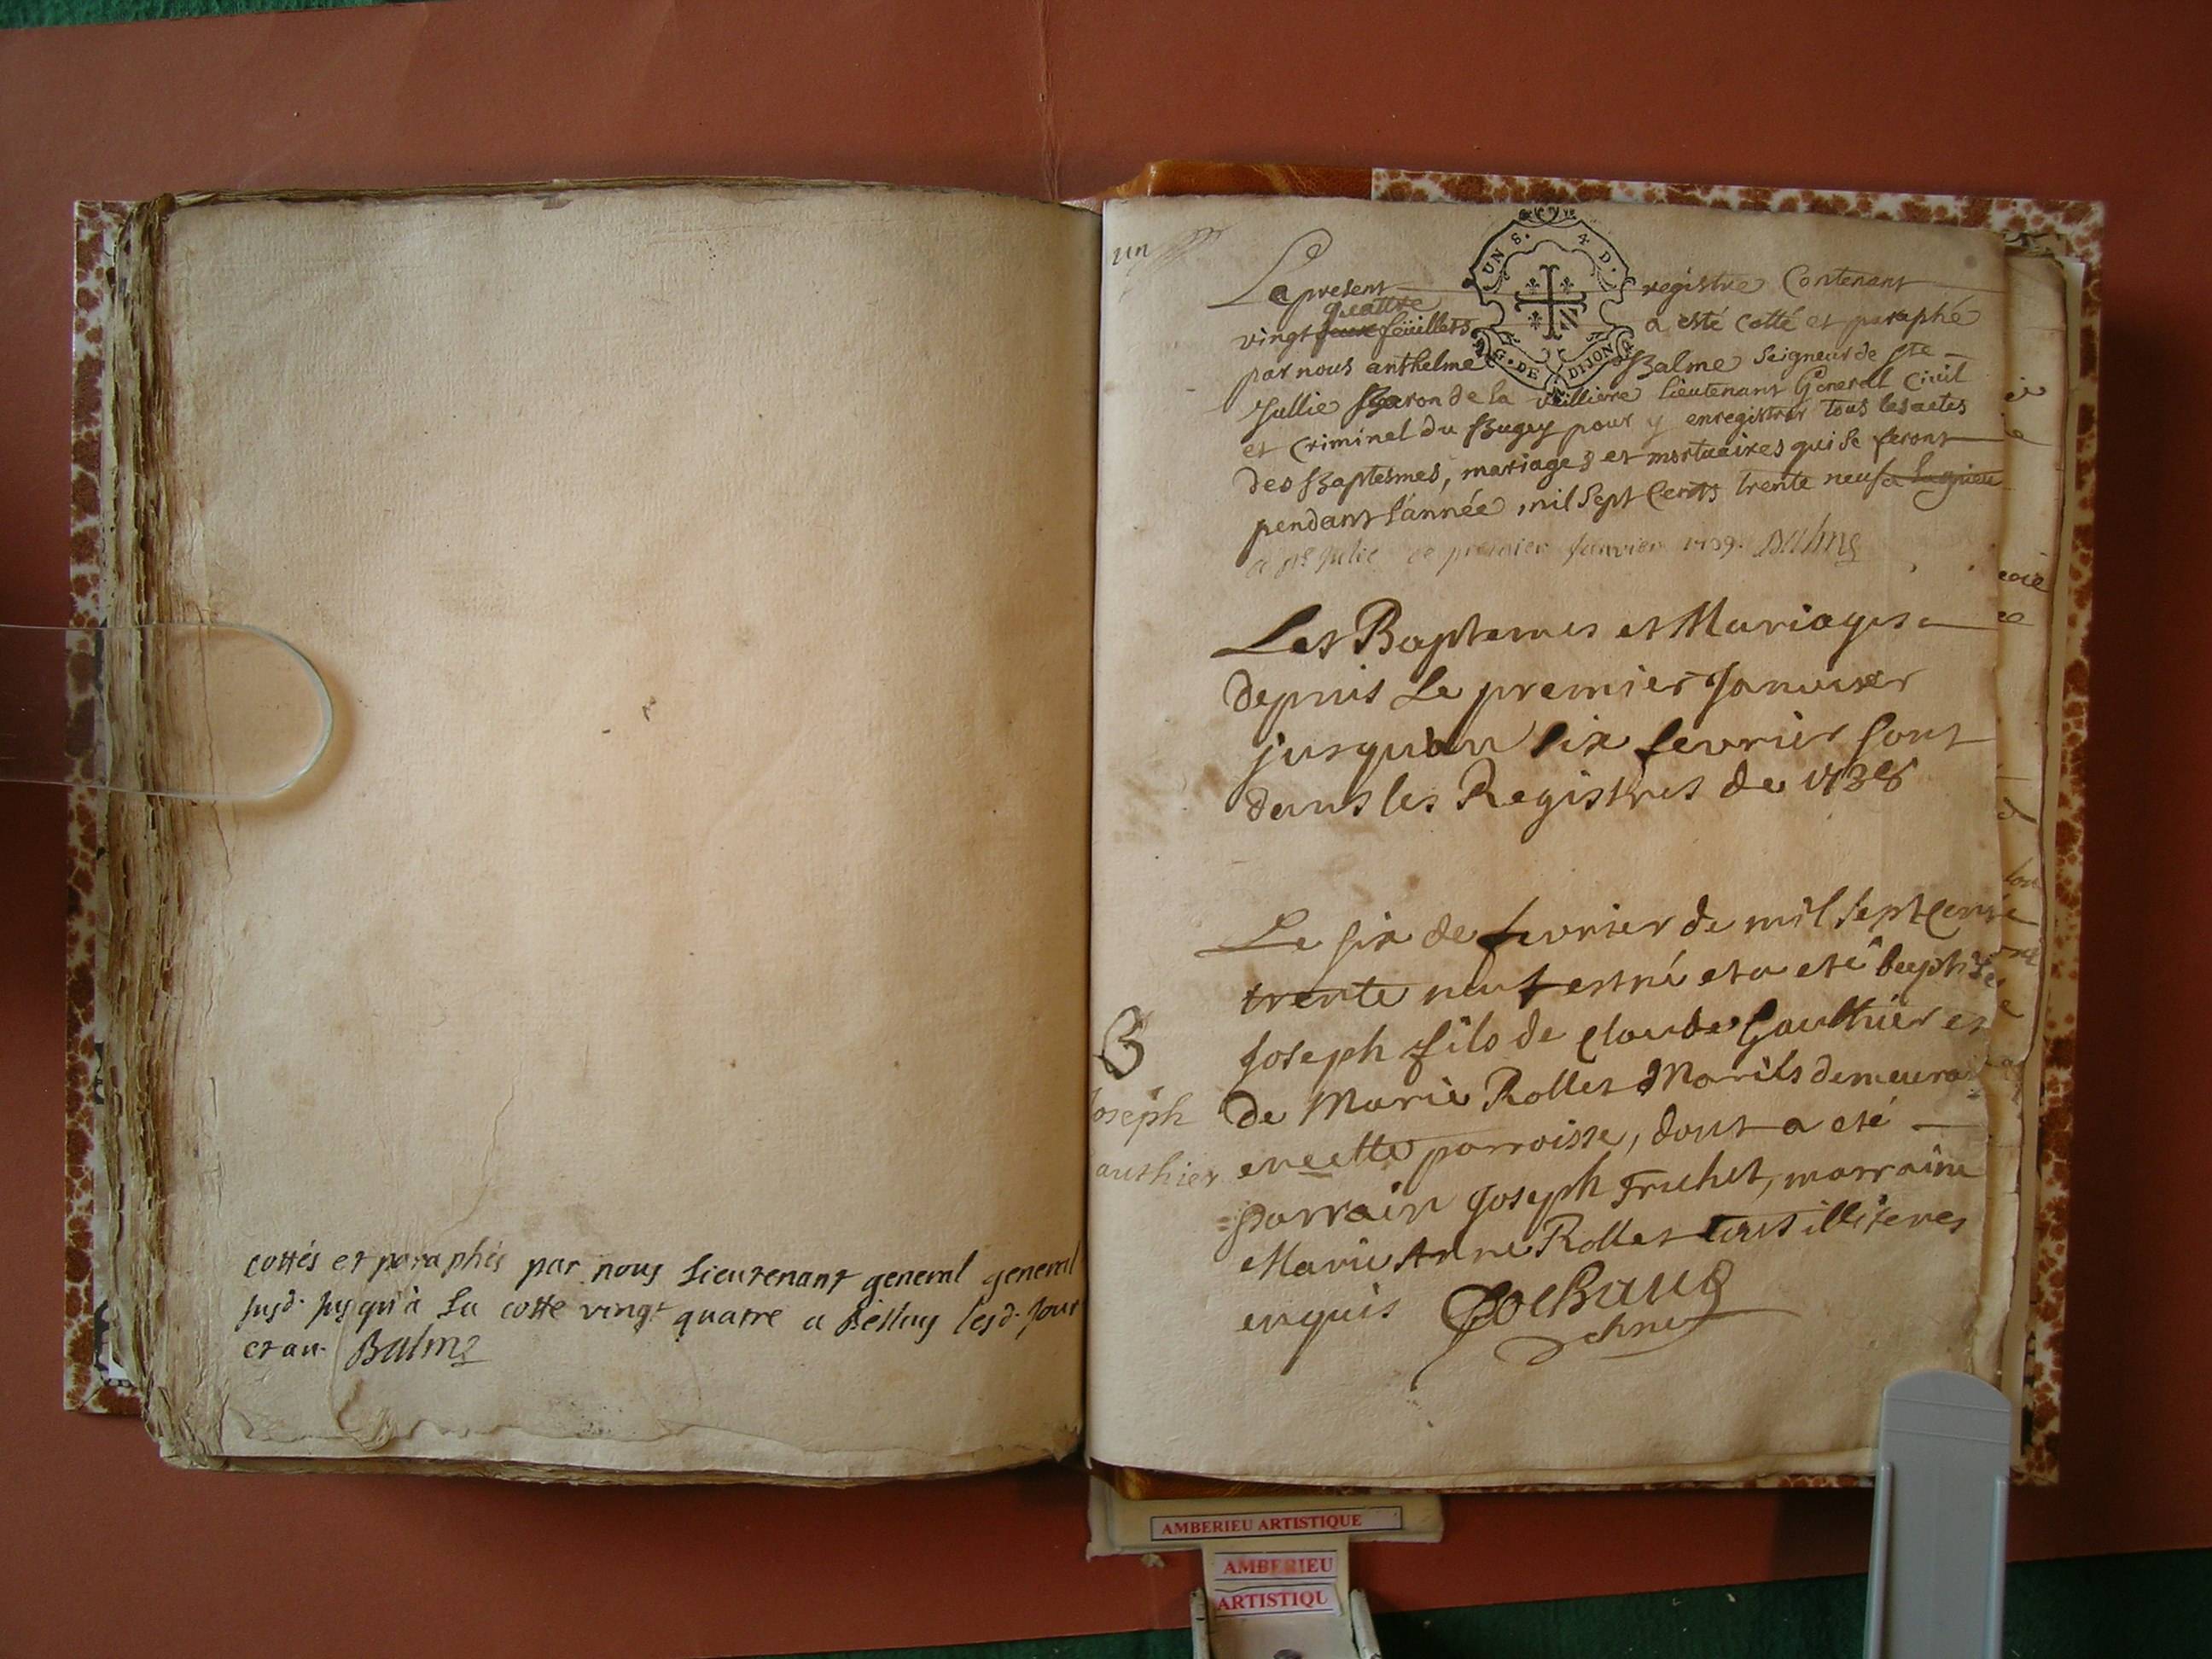 cottés et paraphés par nous Lieutenant general general
susd. jusqu'à la cotte vingt quatre a Bellay lesd. jour
et an. Balme
un
UN S. 4 D.
G. DE DIJON
Le present registre Contenant
quattre
vingt feüillets a esté cotté et paraphé
par nous anthelme Balme Seigneur de Ste
Jullie Baron de la veilliere lieutenant General Civil
et Criminel du Bugey pour y enregistrer tous les actes
des Baptesmes, mariages et mortuaires qui se feront
pendant l'année mil Sept Cents trente neuf a Lagnieu
a Ste Julie le premier Janvier 1739. Balme
Les Baptemes et Mariages
depuis Le premier Janvier
jusqu'au six fevrier sont
dans les Registres de 1738
Le six de fevrier de mil sept cent
trente neuf est né et a eté baptisé
Joseph fils de Claude Gauthier et
de Marie Rollet Mariés demeurant
en cette parroisse, dont a eté
parrain Joseph Truchet, marraine
Marie Anne Rollet tous illiteres
enquis
B
Joseph
Gauthier
AMBERIEU ARTISTIQUE
AMBERIEU
ARTISTIQU